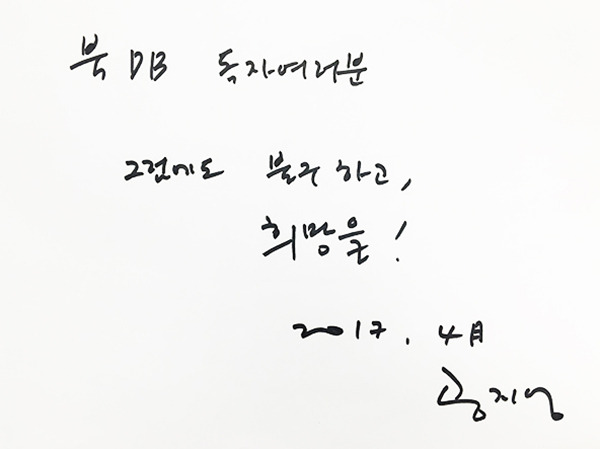 북DB 독자여러분
그럼에도 불구하고,
희망을!
2017. 4月
공지영